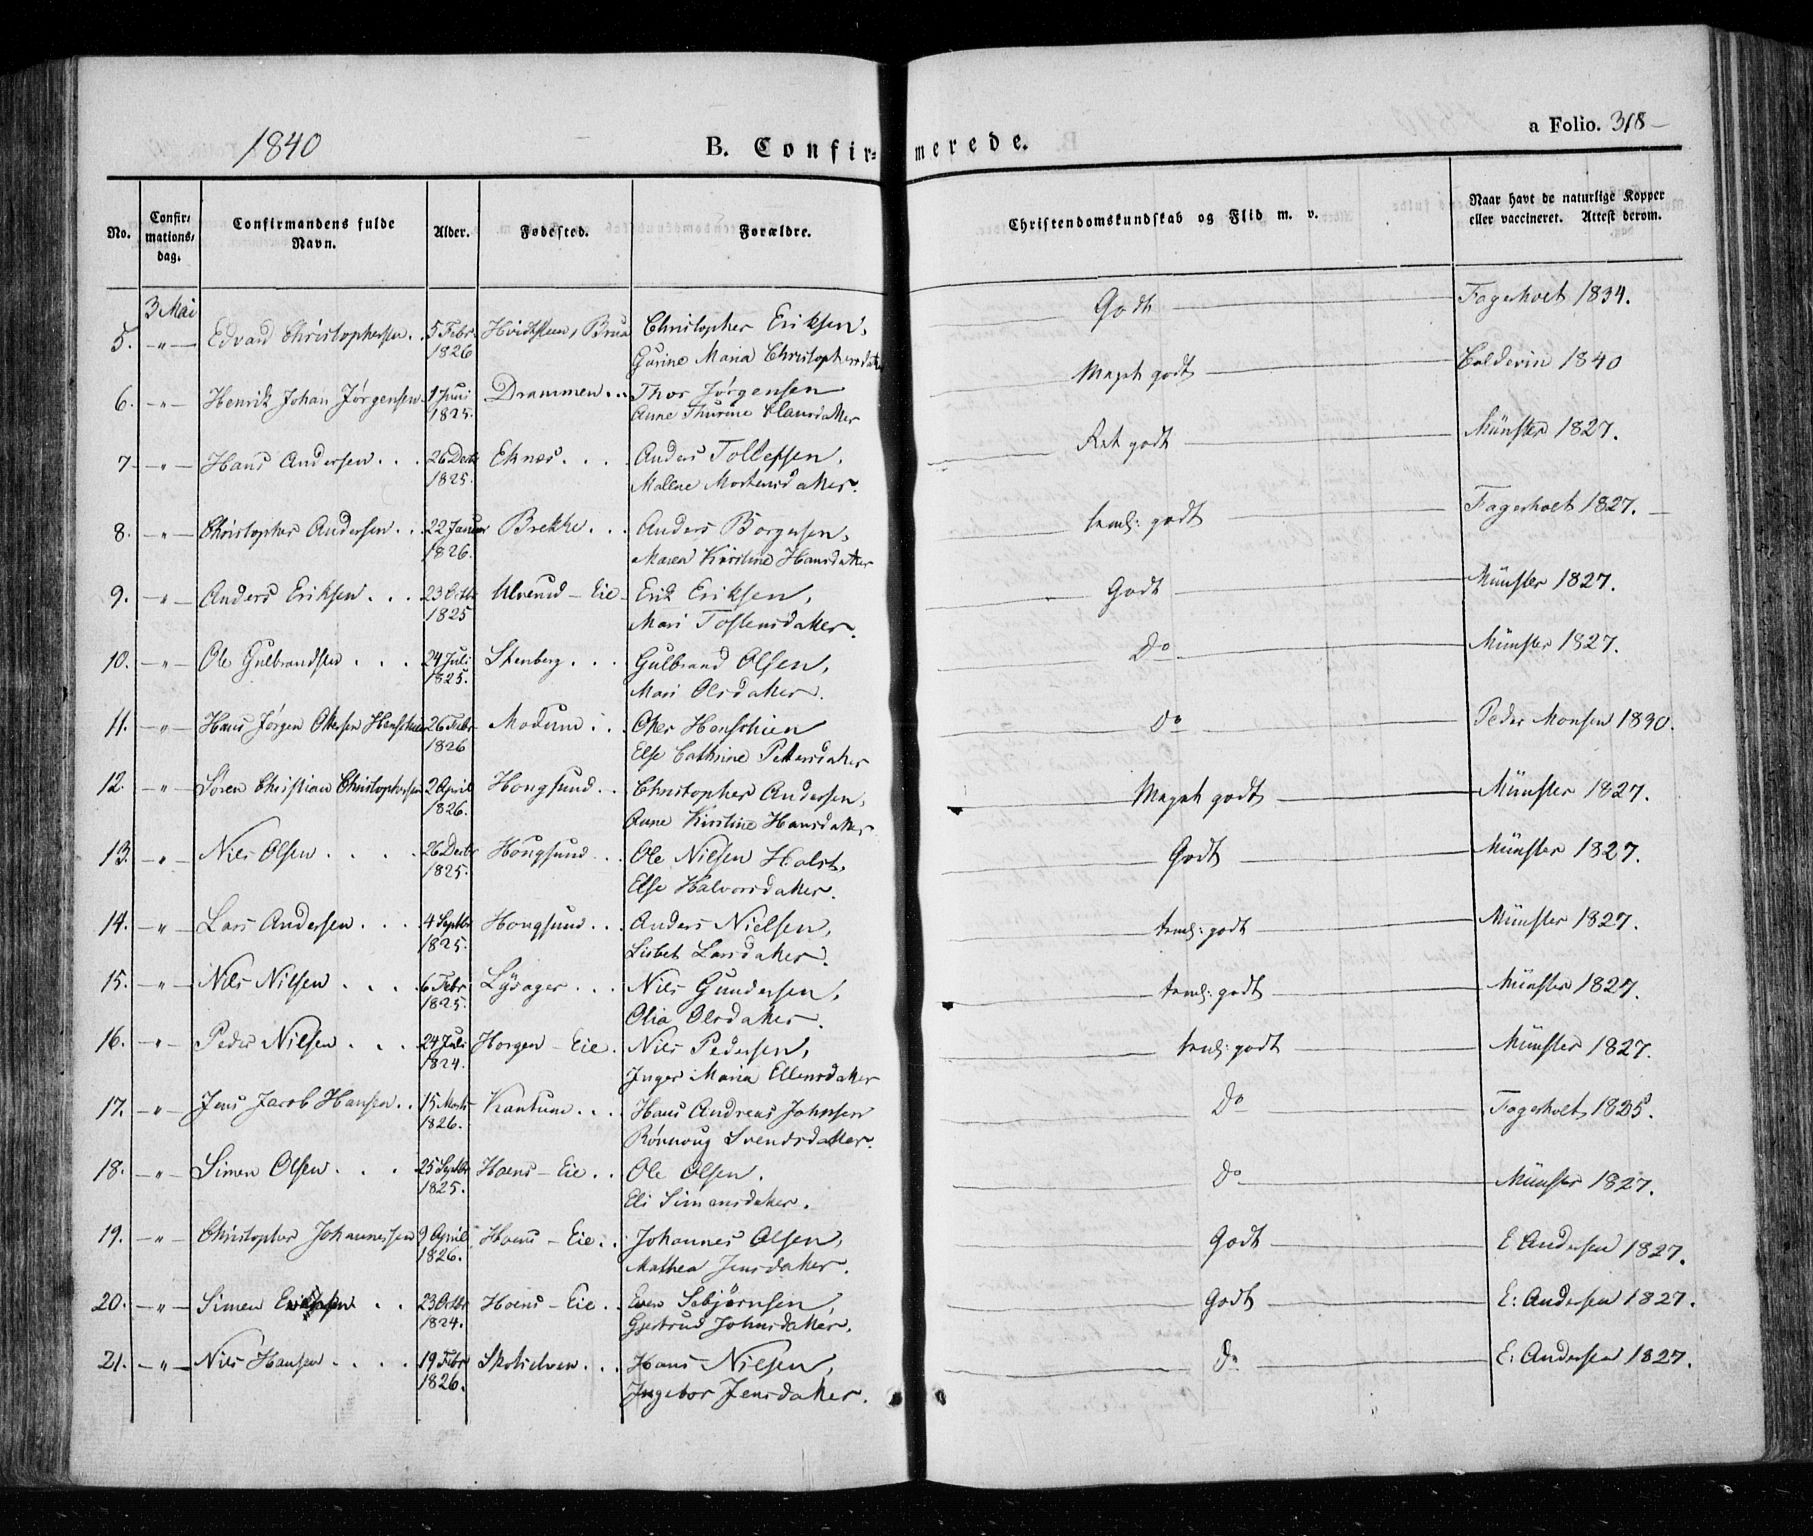 1840
B. Confir=merede.
a Folio. 318
No.
Confirmationsdag.
Confirmandens fulde Navn.
Alder.
Fødested.
Forældre.
Christendomskundskab og Flid m. v.
Naar havt de naturlige Kopper eller vaccineret. Attest derom.
3 Mai
5. -"- Edvard Christophersen .. 5 Febr. 1826 Hvidsteen, Brua Christopher Eriksen, Gurine Maria Christophersdatter Godt Fagerholt 1834.
6. -"- Henrik Johan Jørgensen 1 Juni 1825. Drammen ... Thor Jørgensen Anne Thurine Clausdatter Meget godt Coldevin 1840
7 -"- Hans Andersen ... 26 Decbr 1825. Eknes .... Anders Tollefsen, Mallene Mortensdatter. Ret godt Münster 1827.
8. -"- Christopher Andersen .. 22 Januar 1826. Brekke ... Anders Borgersen, Maren Kirstine Hansdatter temel: godt Fagerholt 1827.
9. -"- Anders Eriksen ... 23 Octbr 1825 Ulverud - Eie Erik Eriksen, Mari Tostensdatter. Godt Münster 1827.
10. -"- Ole Gulbrandsen ... 24 Juli 1825. Stenberg ... Gulbrand Olsen, Mari Olsdatter. Do Münster 1827.
11. -"- Hans Jørgen Ottersen Henschien 26 Febr 1826 Modum ... Otter Henschien Else Cathrine Pettersdatter Do Peder Monsen 1830.
12. -"- Søren Christian Christophersen 2 April 1826. Hongsund .. Christopher Andersen, Anne Kirstine Hansdatter Meget godt Münster 1827.
13. -"- Nils Olsen .... 26 Decbr 1825. Hongsund ... Ole Nilsen Holst, Else Halvorsdatter. Godt Münster 1827.
14. -"- Lars Andersen ... 4 Septbr 1825. Hongsund ... Anders Nielsen, Lisbet Larsdatter. temel: godt Münster 1827.
15. -"- Nils Nilsen .... 6 Febr 1825. Lysager ... Nils Gundersen, Olia Olsdatter. temel: godt Münster 1827.
16. -"- Peder Nilsen ... 24 Juli 1824. Horgen - Eie. Nils Pedersen, Inger Maria Ellensdatter temel: godt Münster 1827.
17. -"- Jens Jacob Hansen .. 15 Marts 1826. Krantum ... Hans Andreas Johnsen Rønnoug Svendsdatter. Do Fagerholt 1835.
18. -"- Simen Olsen .... 25 Septbr 1825. Hoens - Eie .. Ole Olsen. Eli Simensdatter. Do Münster 1827.
19. -"- Christopher Johannessen 9 April 1826. Hoens - Eie .. Johannes Olsen, Mathea Jensdatter. Godt E. Andersen 1827.
20. -"- Simen .. 23 Octbr 1824. Hoens - Eie . Even Sebjørnsen, Gjertrud Johnsdatter. Godt E: Andersen 1827.
21. -"- Nils Hansen .... 19 Febr 1826. Skotselven ... Hans Nilsen, Ingebor Jensdatter. Do E: Andersen 1827.